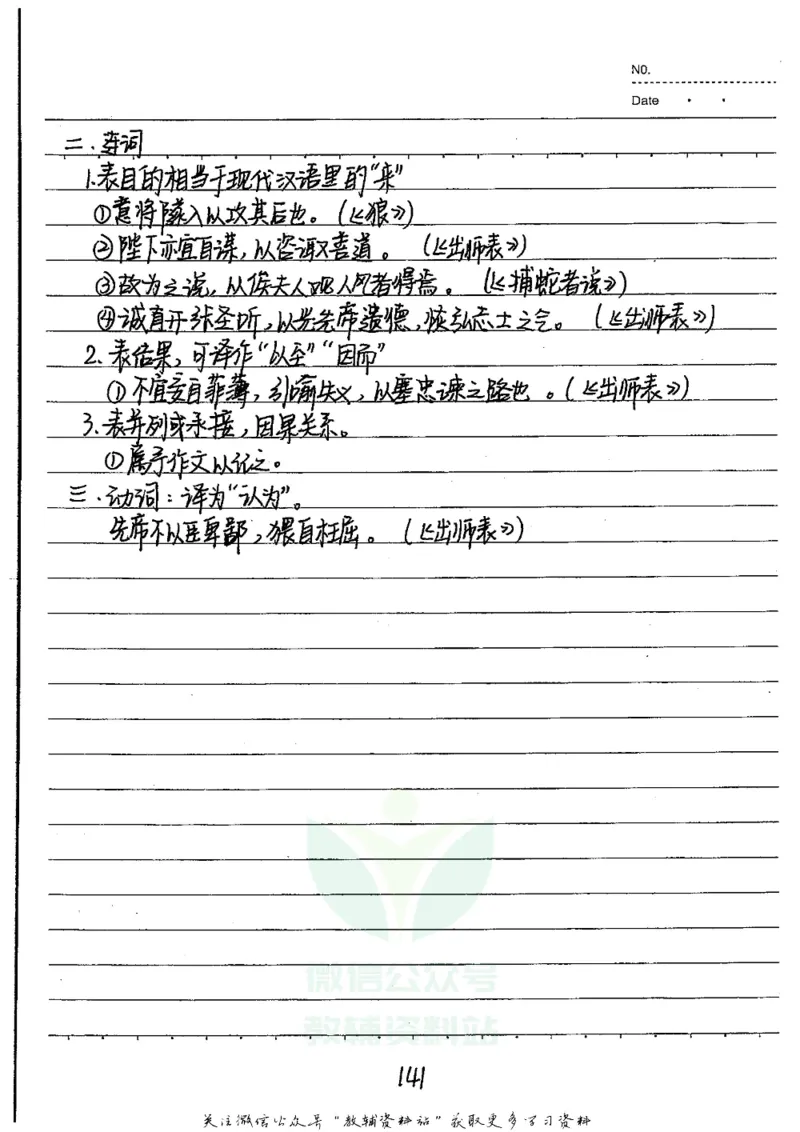 NO.
Date
二.连词
1.表目的相当于现代汉语里的“来”
①意将隧入以攻其后也。(《狼》)
②陛下亦宜自谋,以咨诹善道。(《出师表》)
③故为之说,以俟夫人观人风者得焉。(《捕蛇者说》)
④诚宜开张圣听,以光先帝遗德,恢弘志士之气。(《出师表》)
2.表结果,可译作“以至”“因而”
①不宜妄自菲薄,引喻失义,以塞忠谏之路也。(《出师表》)
3.表并列或承接,因果关系。
①属予作文以记之。
三.动词:译为“认为”。
先帝不以臣卑鄙,猥自枉屈。(《出师表》)
微信公众号
教辅资料站
141
关注微信公众号“教辅资料站”获取更多学习资料